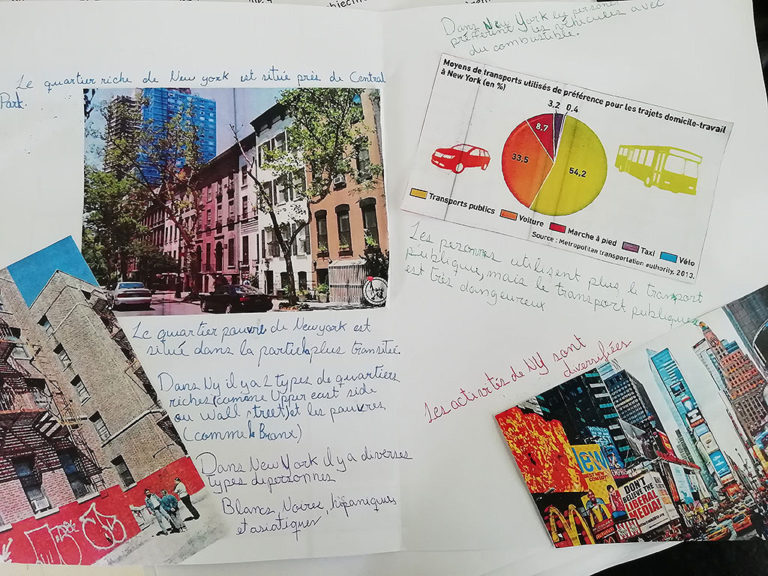 Le quartier riche de New york est situé près de Central
Park.
Le quartier pauvre de Newyork est
situé dans la partie plus transitée.
Dans Ny il y a 2 types de quartiers
riches (comme Upper east side
ou Wall street) et les pauvres
(comme le Bronx)
Dans New York il y a diverses
types de personnes
Blancs, Noires, hispaniques
et asiatiques
Dans New York les personnes
préfèrent les véhicules avec
du combustible.
Moyens de transports utilisés de préférence pour les trajets domicile-travail
à New York (en %)
3,2 0,4
8,7
33,5
54,2
Transports publics Voiture Marche à pied Taxi Vélo
Source : Metropolitan transportation authority, 2013.
Les personnes utilisent plus le transport
publique, mais le transport publique
est très dangeureux
Les activités de NY sont
diversifiées
DON'T
BELIEVE THE
LIBERAL
MEDIA!